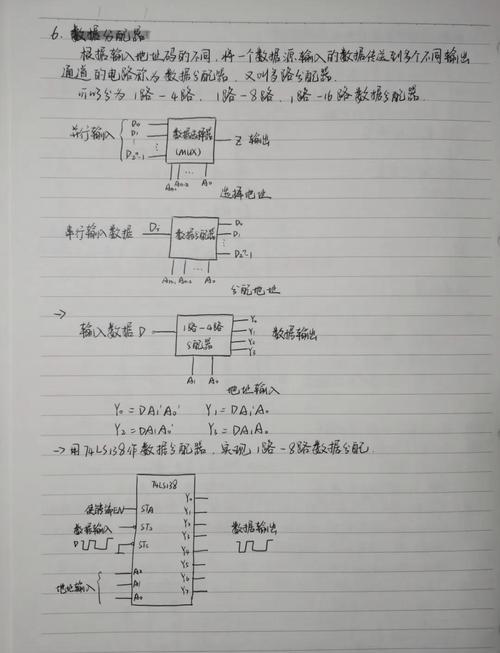 6. 数据分配器
根据输入地址码的不同,将一个数据源输入的数据传送到多个不同输出
通道的电路称为数据分配器,又叫多路分配器.
可以分为1路-4路、1路-8路、1路-16路数据分配器.
并行输入
D₀
D₁
⋮
D₂ⁿ-1
数据选择器
(MUX)
Z 输出
Aₙ₋₁ Aₙ₋₂ … A₀
选择地址
串行输入数据
数据分配器
D₀
D₁
⋮
D₂ⁿ-1
Aₙ₋₁ Aₙ₋₂ … A₀
分配地址
→
输入数据 D
1路-4路
分配器
Y₀
Y₁
Y₂
Y₃
数据输出
A₁ A₀
地址输入
Y₀=DA₁'A₀' Y₁=DA₁'A₀
Y₂=DA₁A₀' Y₃=DA₁A₀
→用74LS138作数据分配器,实现1路-8路数据分配.
74LS138
使能端EN
STA
数据输入
D
地址输入
A₂
A₁
A₀
Y₀
Y₁
Y₂
Y₃
Y₄
Y₅
Y₆
Y₇
数据输出